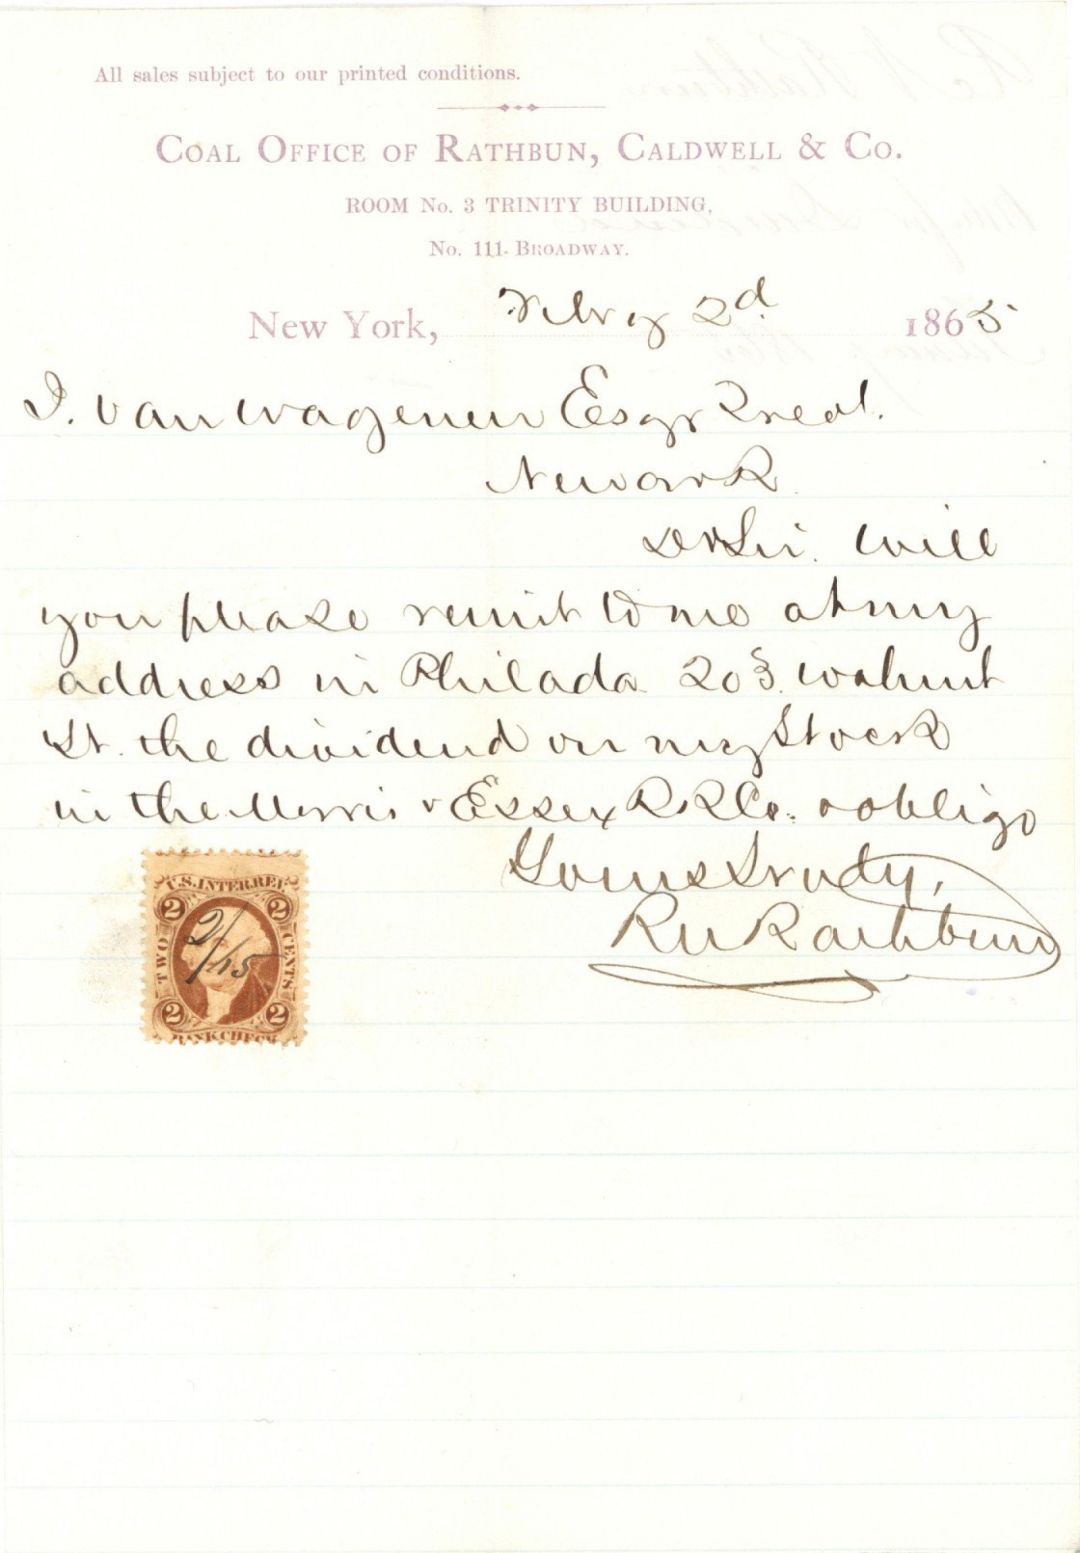 All sales subject to our printed conditions.
COAL OFFICE OF RATHBUN, CALDWELL & Co.
ROOM No. 3 TRINITY BUILDING,
No. 111 BROADWAY.
New York, Febry 2d 1865
J. Van Wagenen Esqr Treas.
Newark
Dr Sir. Will
you please remit to me at my
address in Philada 203 Walnut
St. the dividend on my Stock
in the Morris & Essex R R Co. & oblige
Yours Truly,
R N Rathbun
U.S. INTER. REV
2 2
TWO CENTS
2/15
2 2
BANK CHECK